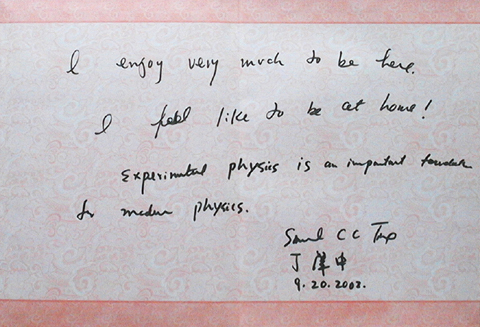 I enjoy very much to be here.
I feel like to be at home!
Experimental physics is an important
for modern physics.
Samuel C C Ting
丁肇中
9.20.2002.